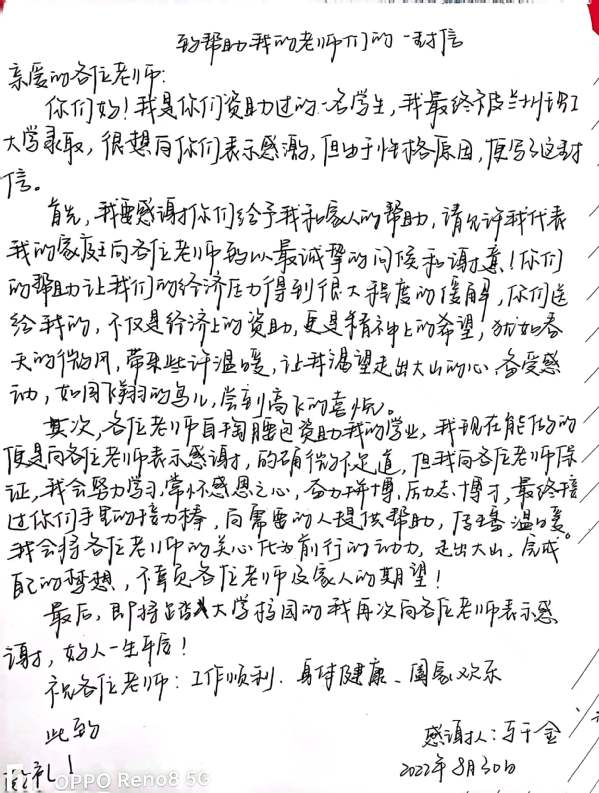 致帮助我的老师们的一封信
亲爱的各位老师:
你们好!我是你们资助过的一名学生,我最终被兰州职工
大学录取,很想向你们表示感激,但由于性格原因,便写了这封
信。
首先,我要感谢你们给予我和家人的帮助,请允许我代表
我的家庭向各位老师致以最诚挚的问候和谢意!你们
的帮助让我们的经济压力得到很大程度的缓解,你们送
给我的,不仅是经济上的资助,更是精神上的希望,犹如春
天的微风,带来些许温暖,让我渴望走出大山的心,备受感
动,如同飞翔的鸟儿,尝到高飞的喜悦。
其次,各位老师自掏腰包资助我的学业,我现在能做的
便是向各位老师表示感谢,的确微不足道,但我向各位老师保
证,我会努力学习,常怀感恩之心,奋力拼搏,励志博才,最终接
过你们手里的接力棒,向需要的人提供帮助,传播温暖。
我会将各位老师的关心化为前行的动力,走出大山,完成
自己的梦想,不辜负各位老师及家人的期望!
最后,即将踏入大学校园的我再次向各位老师表示感
谢,好人一生平安!
祝各位老师:工作顺利、身体健康、阖家欢乐
此致
敬礼!
感谢人:马千金
2022年8月30日
OPPO Reno8 5G